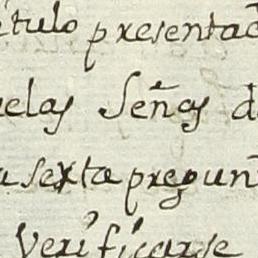 itulo presentad
uelas Señas d
a sexta pregun
Verificarse